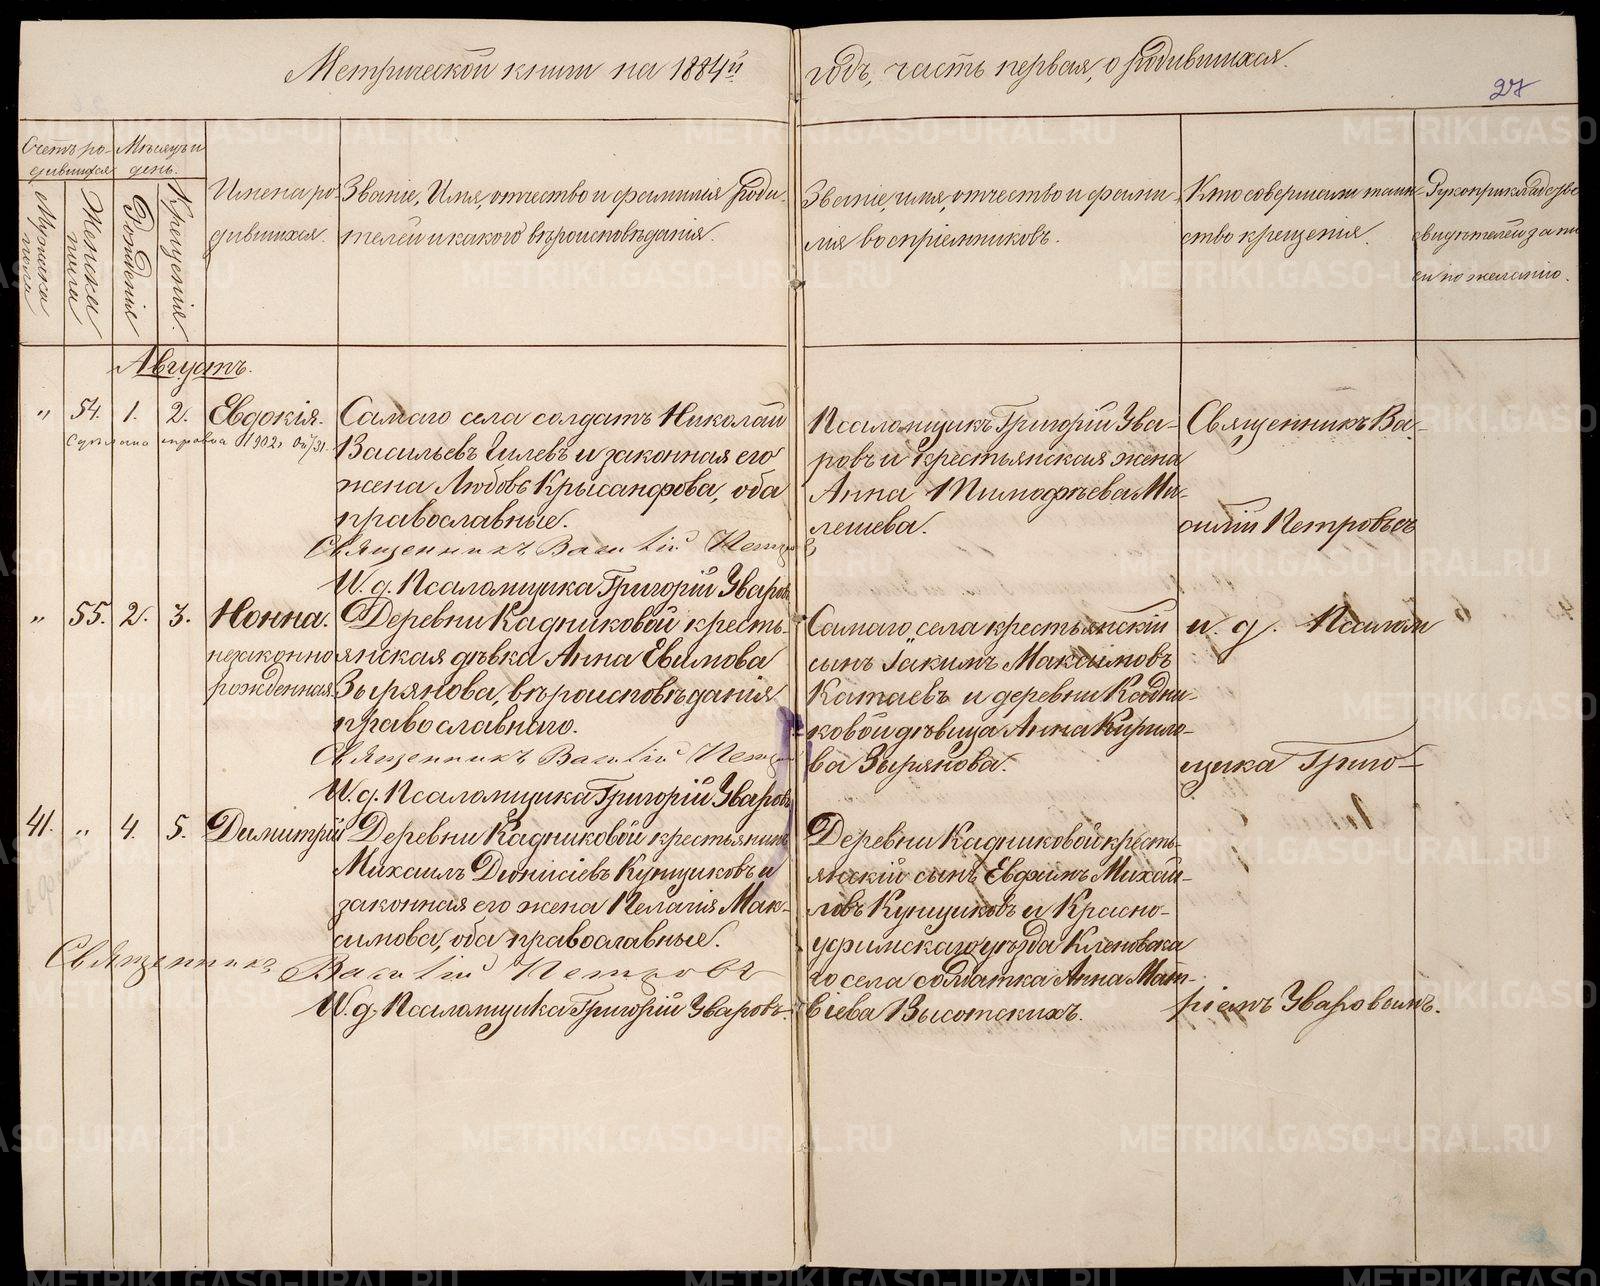 Метрической книги на 1884й годъ, часть первая, о родившихся.
27
Счетъ ро-
дившихся
Мѣсяцъ и
день.
Мужска
пола
Женска
пола
Рожденія
Крещенія.
Имена ро-
дившихся.
Званіе, Имя, отчество и фамилія роди-
телей и какого вѣроисповѣданія.
Званіе, имя, отчество и фами-
лія воспріемниковъ.
Кто совершалъ таин-
ство крещенія.
Рукоприкладство
свидѣтелей записи
по желанію.
Августъ.
" 54. 1. 2. Евдокія.
Сдѣлана справка 1902
Самаго села солдатъ Николай
Васильевъ Гилевъ и законная его
жена Любовь Крысанфова, оба
православные.
Священникъ Василій Петровъ
И. д. Псаломщика Григорій Уваровъ
Псаломщикъ Григорій Ува-
ровъ и крестьянская жена
Анна Тимофѣева Ми-
лешева.
Священникъ Ва-
силій Петровъ съ
" 55. 2. 3. Нонна.
незаконно
рожденная.
Деревни Кадниковой кресть-
янская дѣвка Анна Евимова
Зырянова, вѣроисповѣданія
православнаго.
Священникъ Василій Петровъ
И. д. Псаломщика Григорій Уваровъ
Самаго села крестьянскій
сынъ Іакимъ Максимовъ
Катаевъ и деревни Кадни-
ковой дѣвица Анна Кирило-
ва Зырянова.
и. д. Псалом
щика Григо-
41. " 4. 5. Димитрій
Деревни Кадниковой крестьянинъ
Михаилъ Діонисіевъ Купщиковъ и
законная его жена Пелагія Мак-
симова, оба православные.
Священникъ Василій Петровъ
И. д. Псаломщика Григорій Уваровъ.
Деревни Кадниковой кресть-
янскій сынъ Евфимъ Михаи-
ловъ Купщиковъ и Красно-
уфимскаго уѣзда Кленовска
го села солдатка Анна Мат-
віева Высотскихъ.
ріемъ Уваровымъ.
METRIKI.GASO-URAL.RU